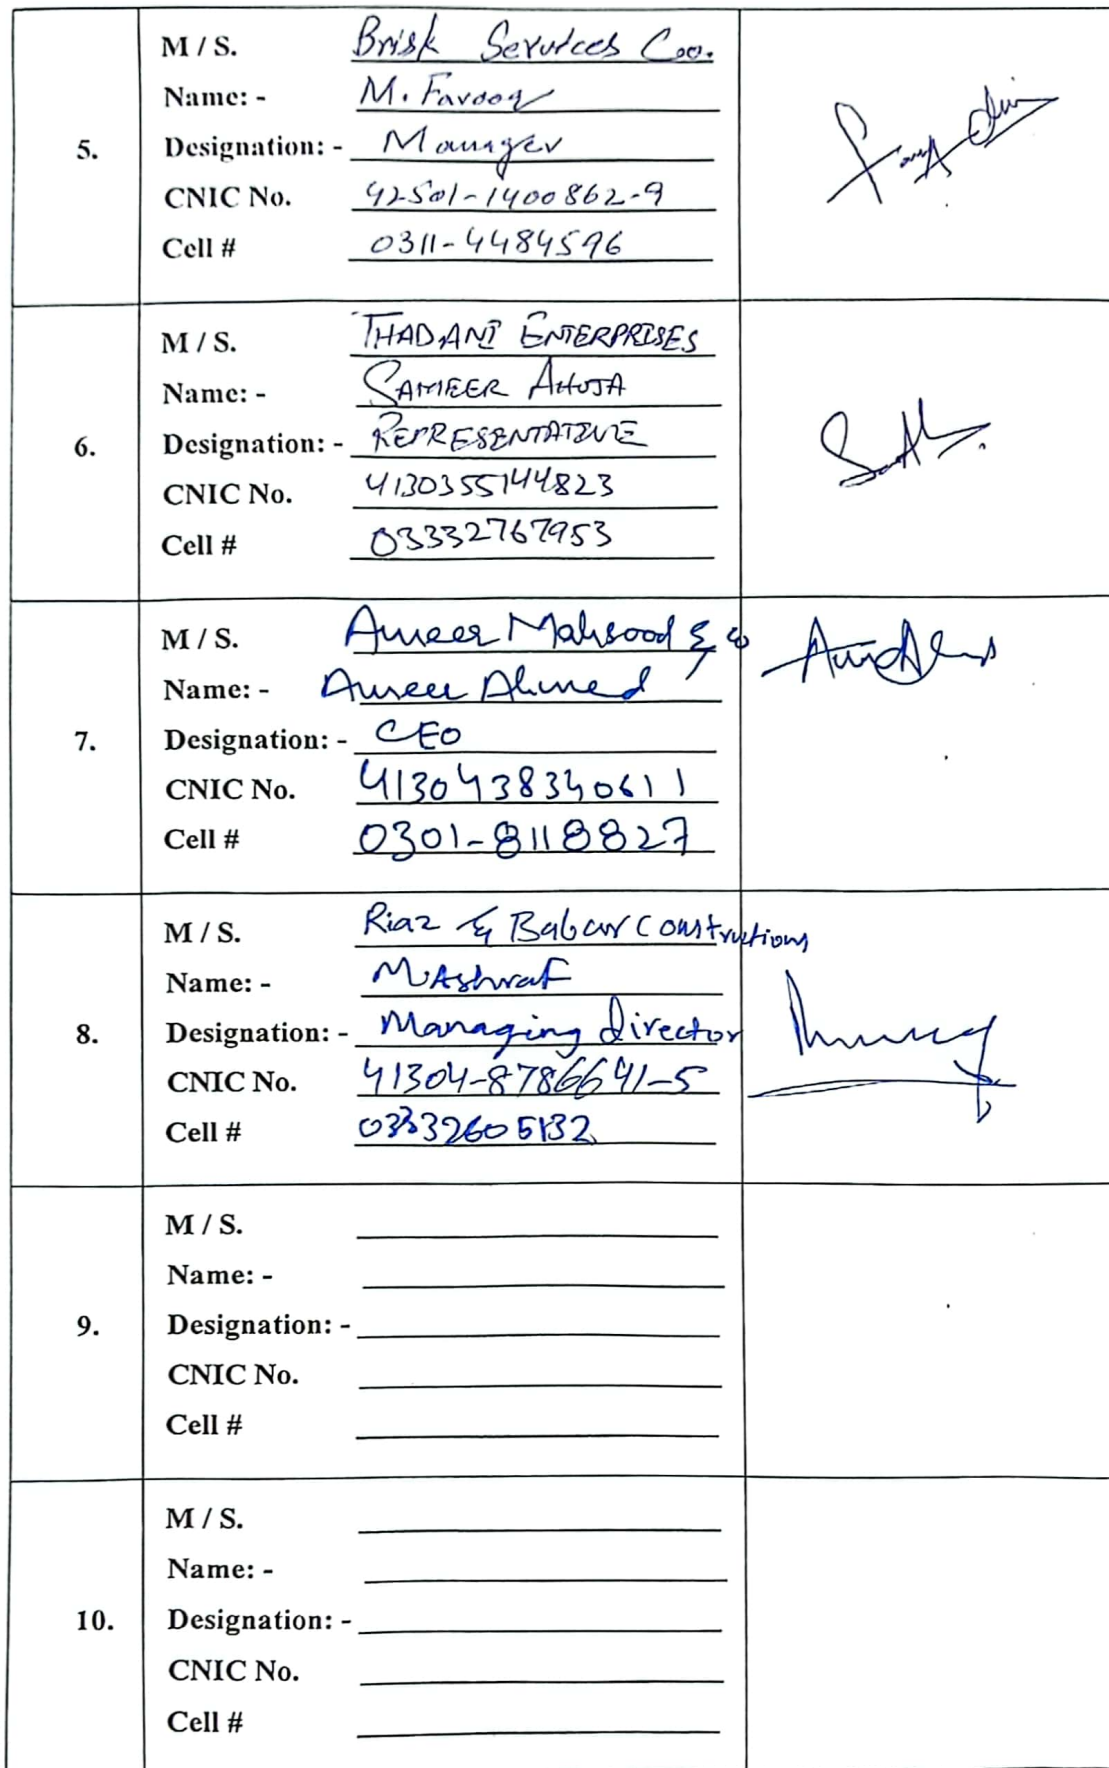 5.
M / S. Brisk Services Coo.
Name: - M. Farooq
Designation: - Manager
CNIC No. 42501-1400862-9
Cell # 0311-4484596
6.
M / S. THADANI ENTERPRISES
Name: - SAMEER AHUJA
Designation: - REPRESENTATIVE
CNIC No. 4130355144823
Cell # 03332767953
7.
M / S. Ameer Mahsood & co
Name: - Ameer Ahmed
Designation: - CEO
CNIC No. 4130438340611
Cell # 0301-8118827
8.
M / S. Riaz & Babar Constructions
Name: - M. Ashraf
Designation: - Managing director
CNIC No. 41304-8786641-5
Cell # 03332605132
9.
M / S.
Name: -
Designation: -
CNIC No.
Cell #
10.
M / S.
Name: -
Designation: -
CNIC No.
Cell #